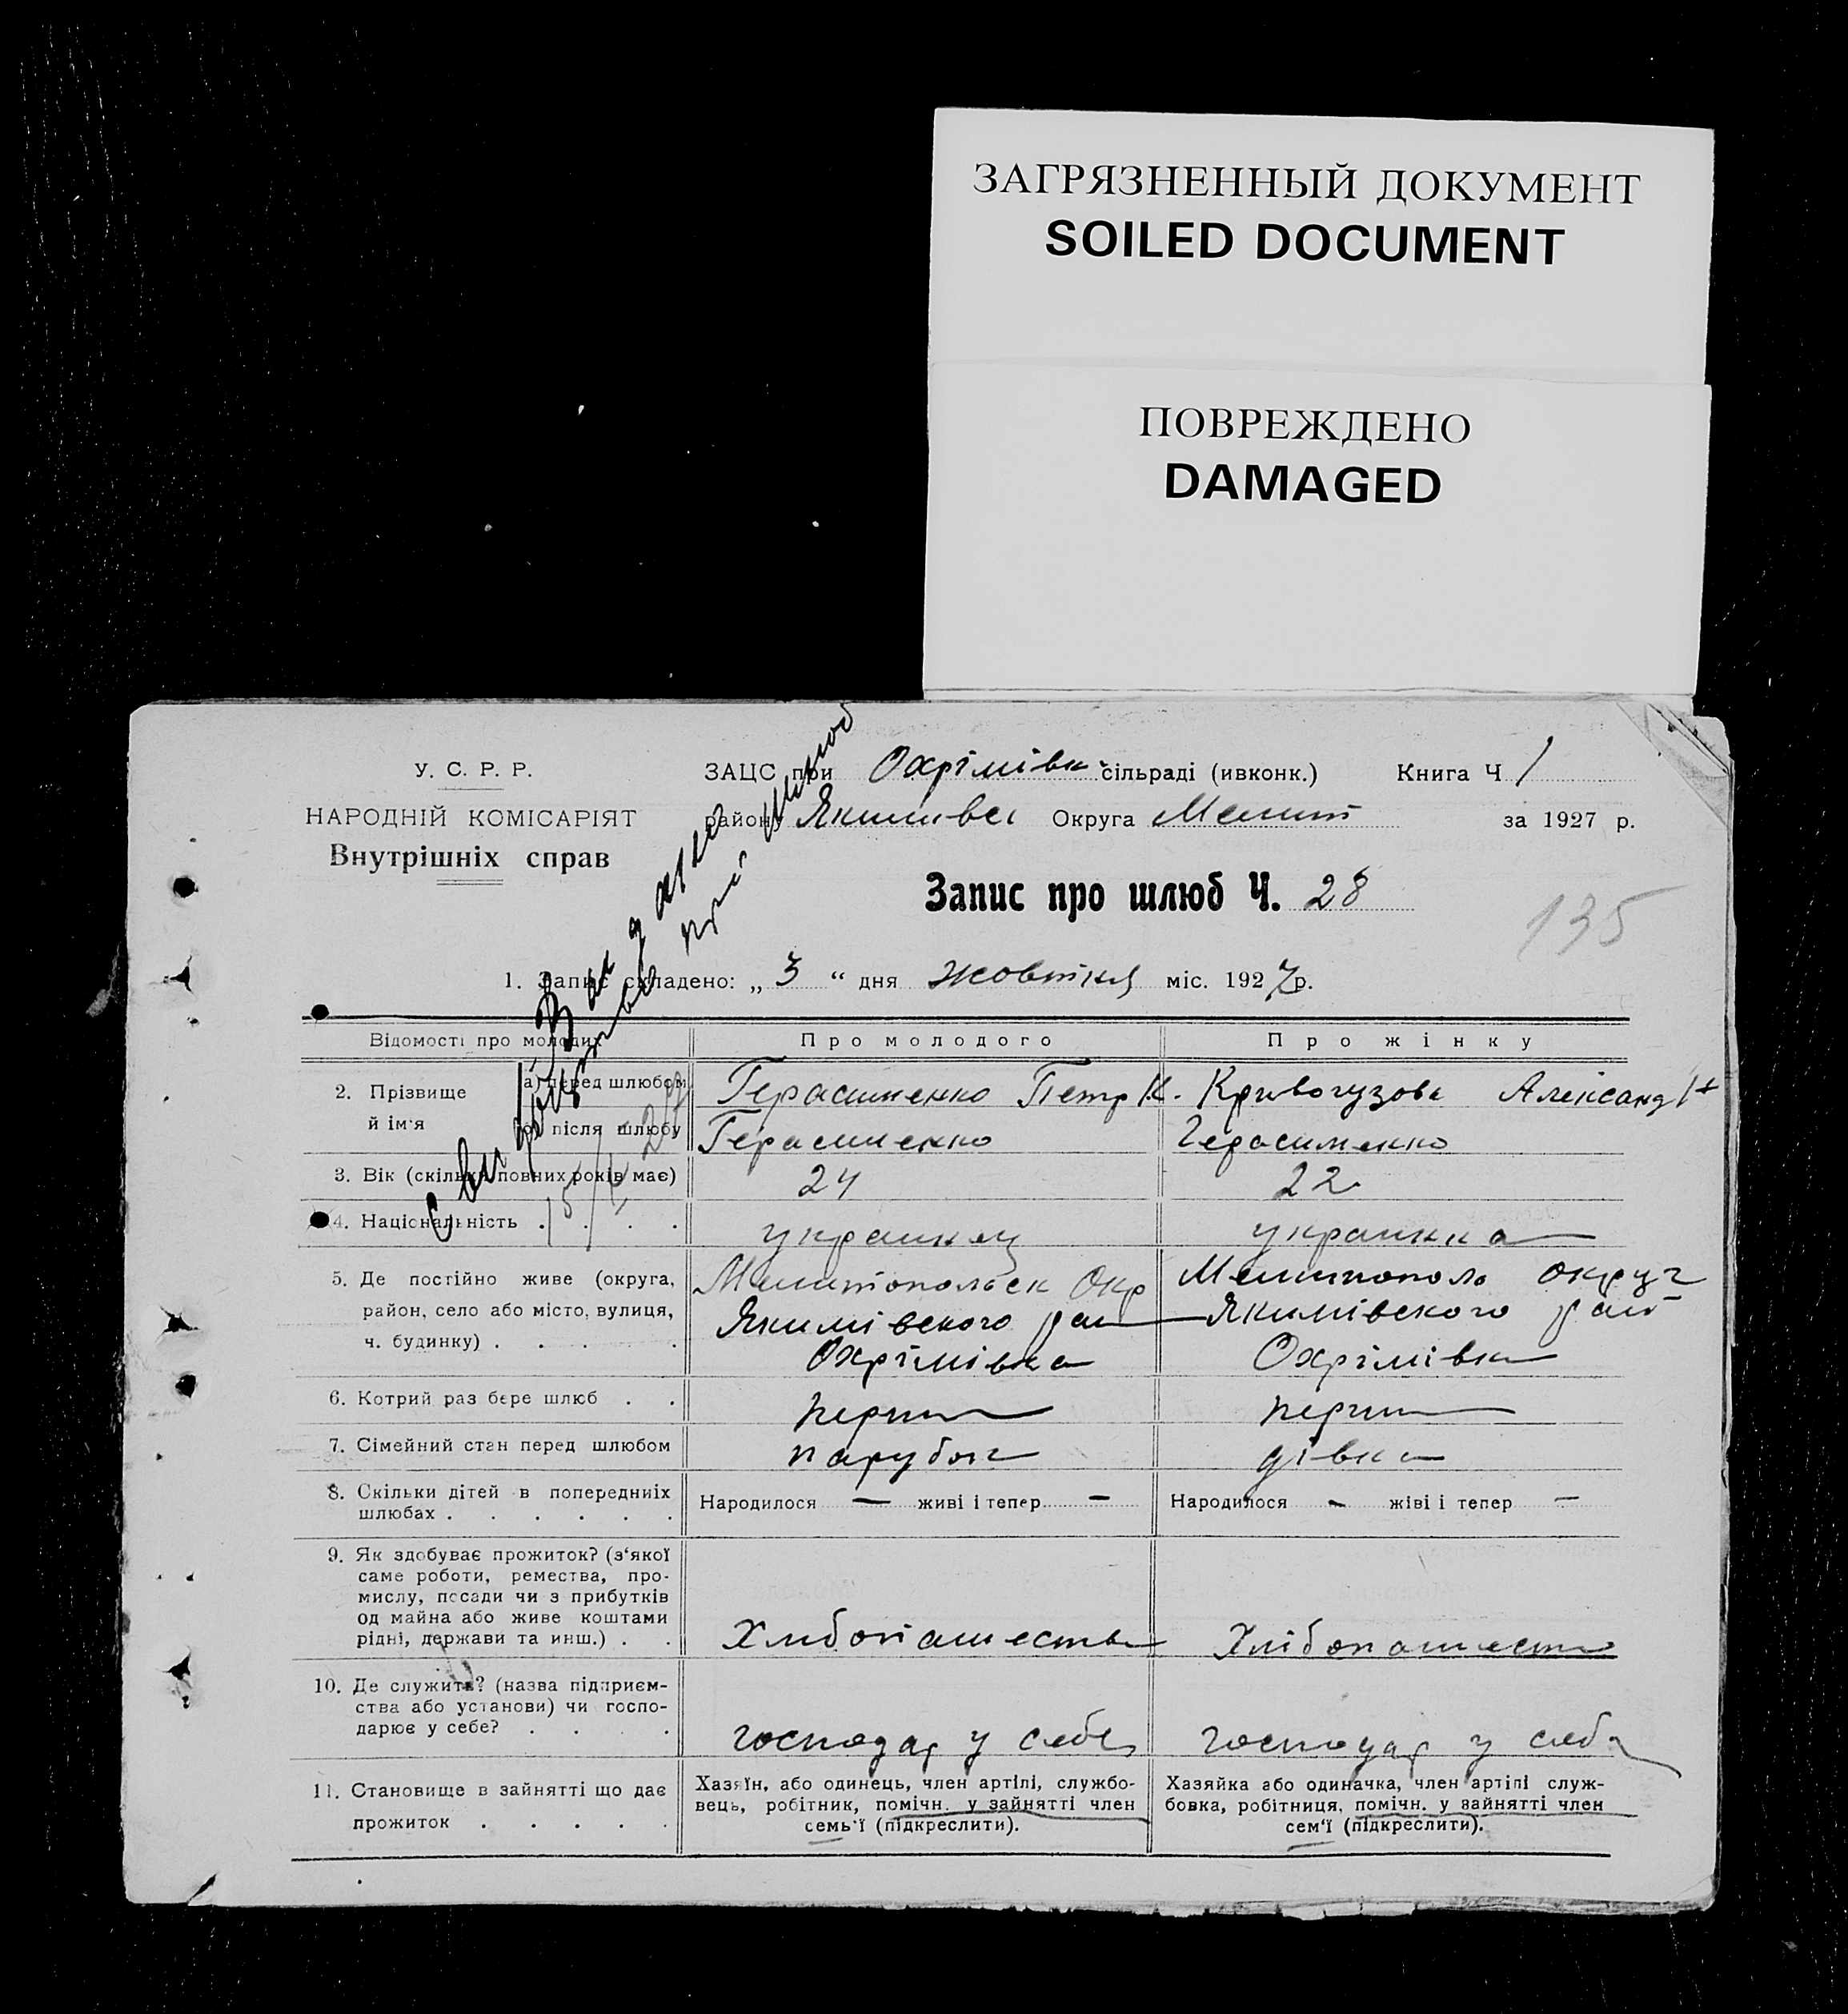 ЗАГРЯЗНЕННЫЙ ДОКУМЕНТ
SOILED DOCUMENT
ПОВРЕЖДЕНО
DAMAGED
У. С. Р. Р.
НАРОДНІЙ КОМІСАРІЯТ
Внутрішніх справ
ЗАЦС при Охрімівк. сільраді (ивконк.) Книга Ч 1
району Якимівсь Округа Мелит за 1927 р.
Запис про шлюб Ч. 28
135
1. Запис складено: „ 3 “ дня жовтня міс. 1927 р.
Відомості про молодих Про молодого Про жінку
2. Прізвище й ім‘я
а) перед шлюбом Герасименко Петр К. Кривогузова Александ
б) після шлюбу Герасименко Герасименко
3. Вік (скільки повних років має) 24 22
4. Національність . . . . украинец украинка
5. Де постійно живе (округа, Мелитопольск Окр Мелитополь округ
район, село або місто, вулиця, Якимівского рай Якимівского рай
ч. будинку) . . . . . Охрімівка Охрімівка
6. Котрий раз бере шлюб . . перший перший
7. Сімейний стан перед шлюбом парубок дівка
8. Скільки дітей в попередниіх Народилося — живі і тепер — Народилося - жіві і тепер —
шлюбах . . . . . .
9. Як здобуває прожиток? (з‘якої
саме роботи, ремества, про-
мислу, посади чи з прибутків
од майна або живе коштами
рідні, держави та инш.) . . Хлибопашество Хлібопашество
10. Де служить? (назва підприєм-
ства або установи) чи госпо-
дарює у себе? . . . . господар у себе господар у себе
11. Становище в зайнятті що дає
прожиток . . . . .
Хазяїн, або одинець, член артілі, службо-
вець, робітник, помічн. у зайнятті член
семь‘ї (підкреслити).
Хазяйка або одиначка, член артілі служ-
бовка, робітниця, помічн. у зайнятті член
сем‘ї (підкреслити).